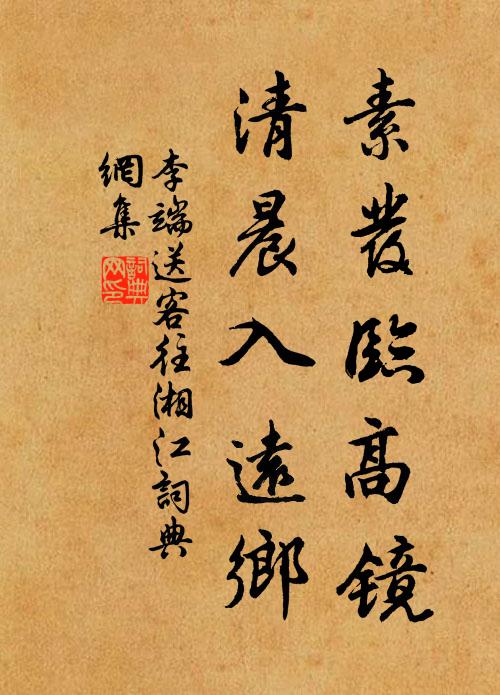 素發臨高鏡
清晨入遠鄉
李端送客往湘江詞典
網集
詞典
网印